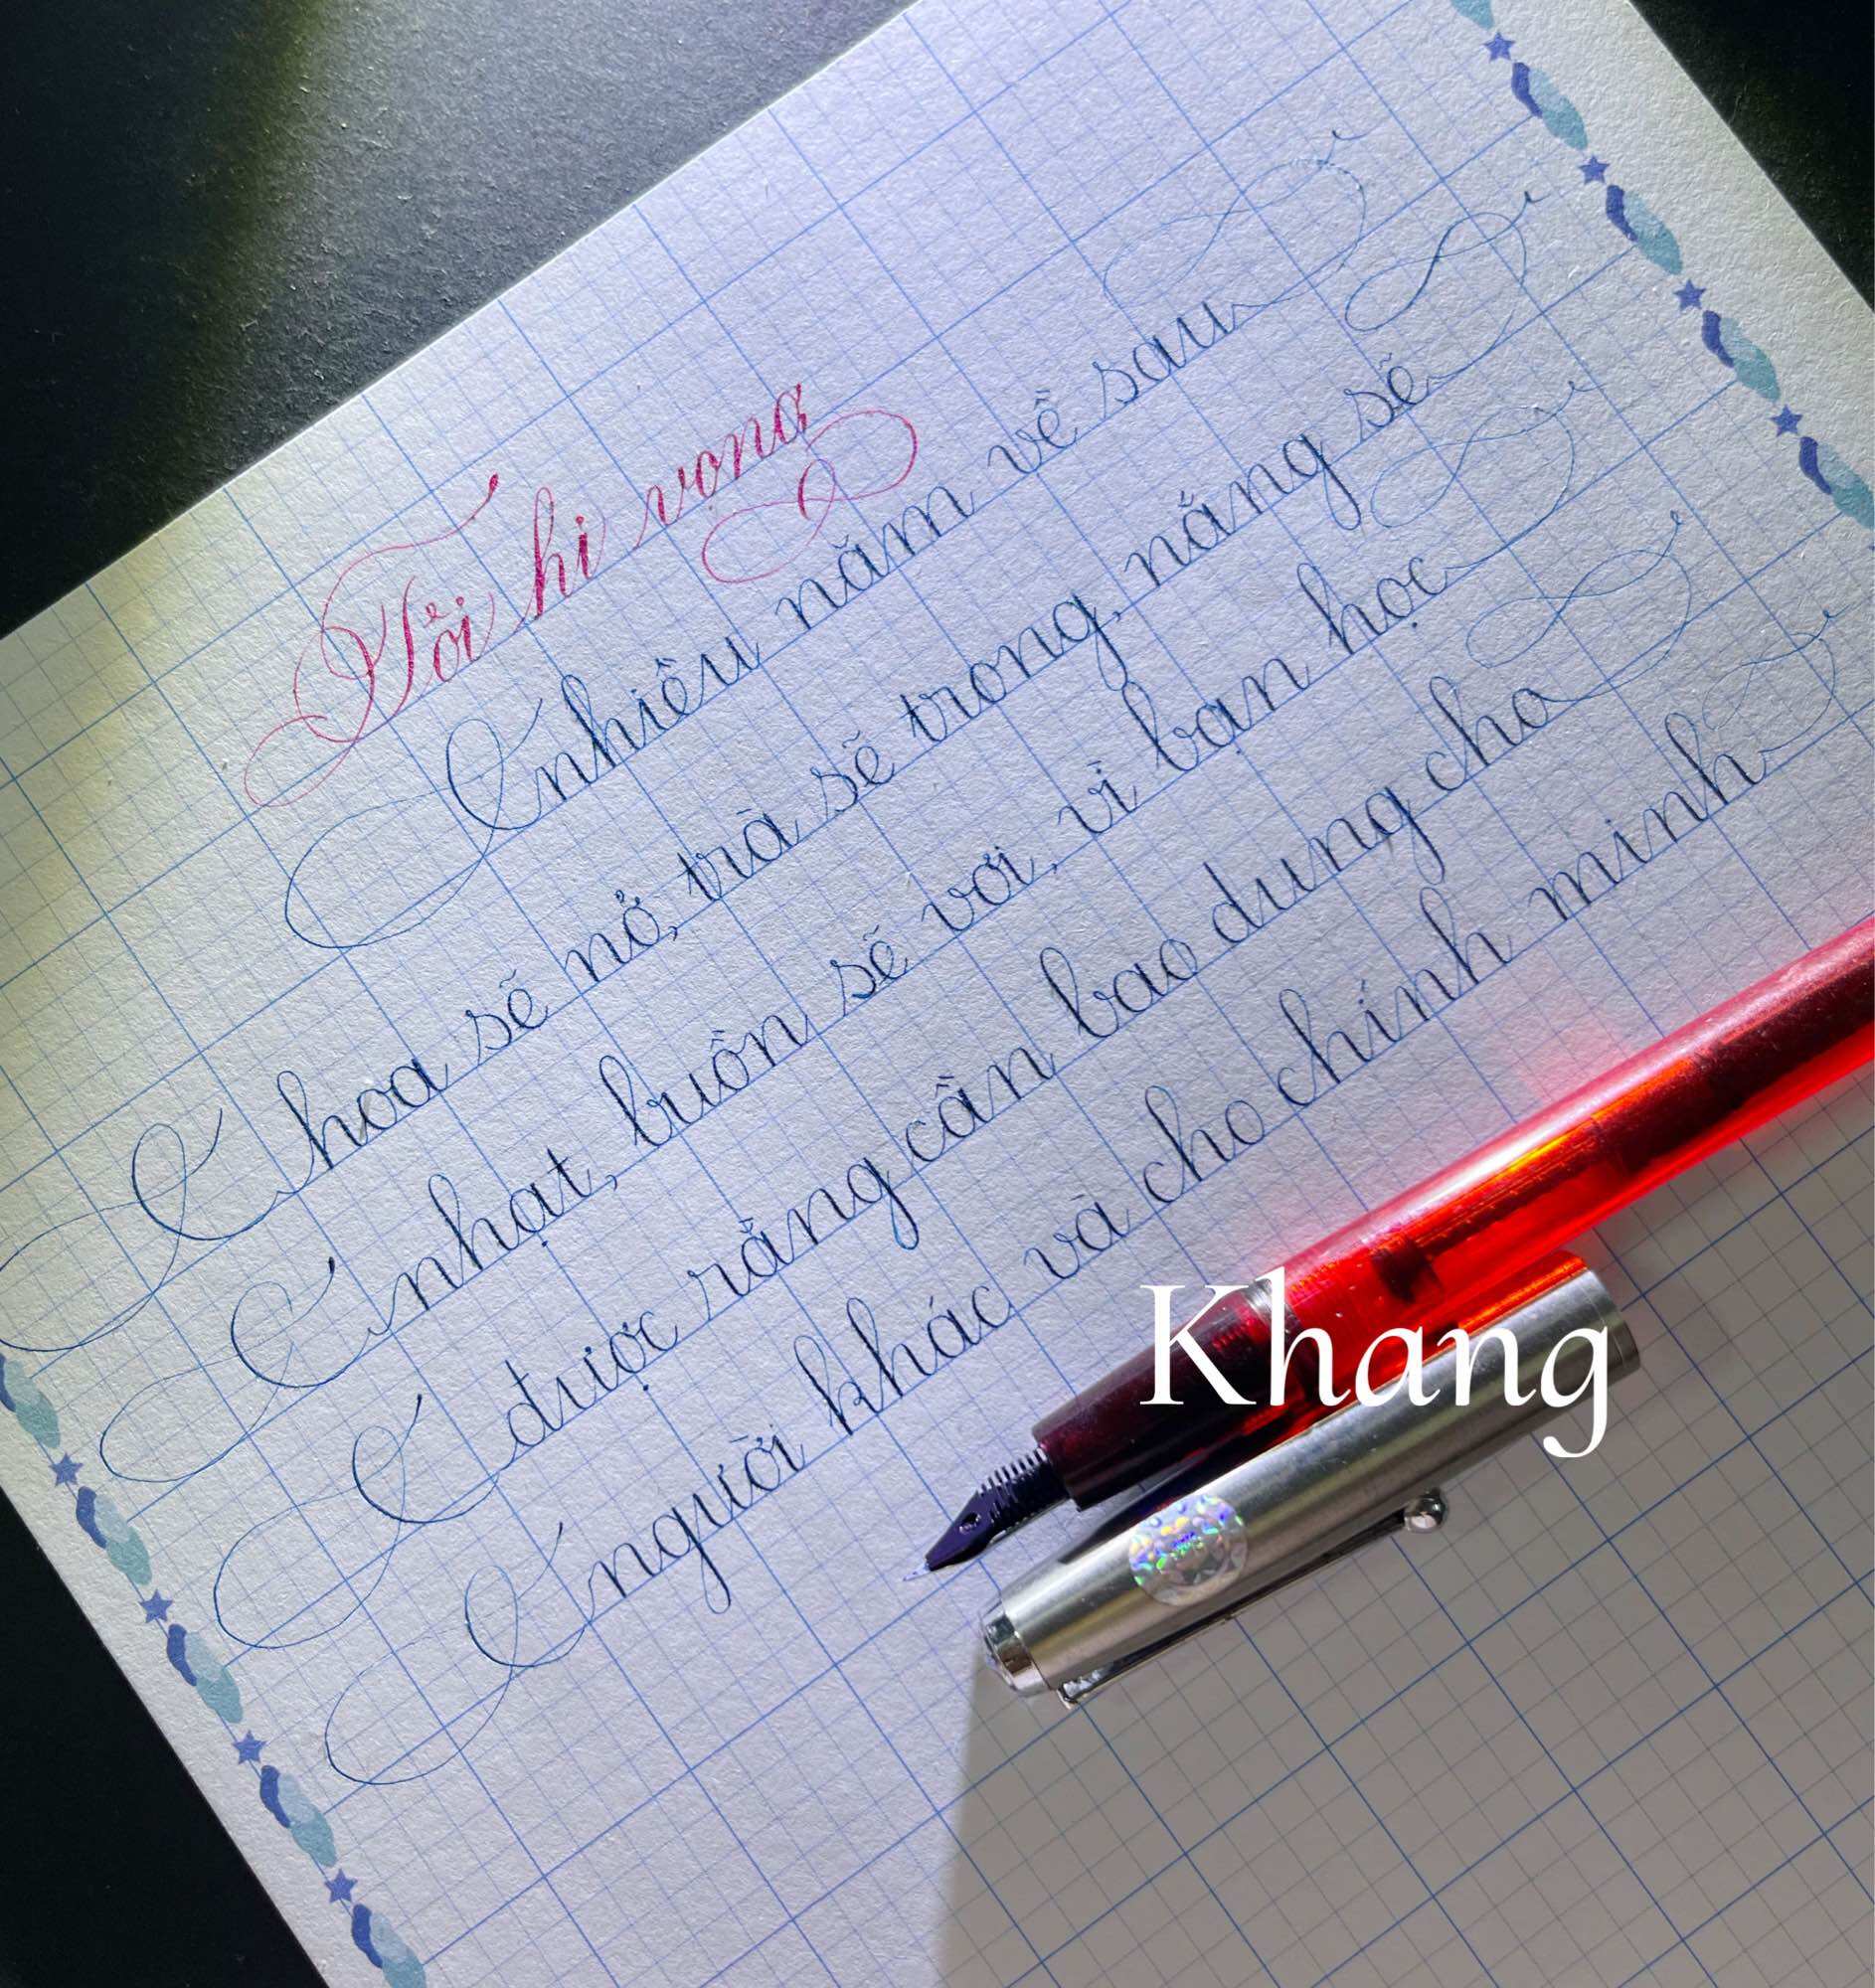 Tôi hi vọng
nhiều năm về sau
hoa sẽ nở, trà sẽ trong, nắng sẽ
nhạt, buồn sẽ vơi, vì bạn học
được rằng cần bao dung cho
người khác và cho chính mình
Khang